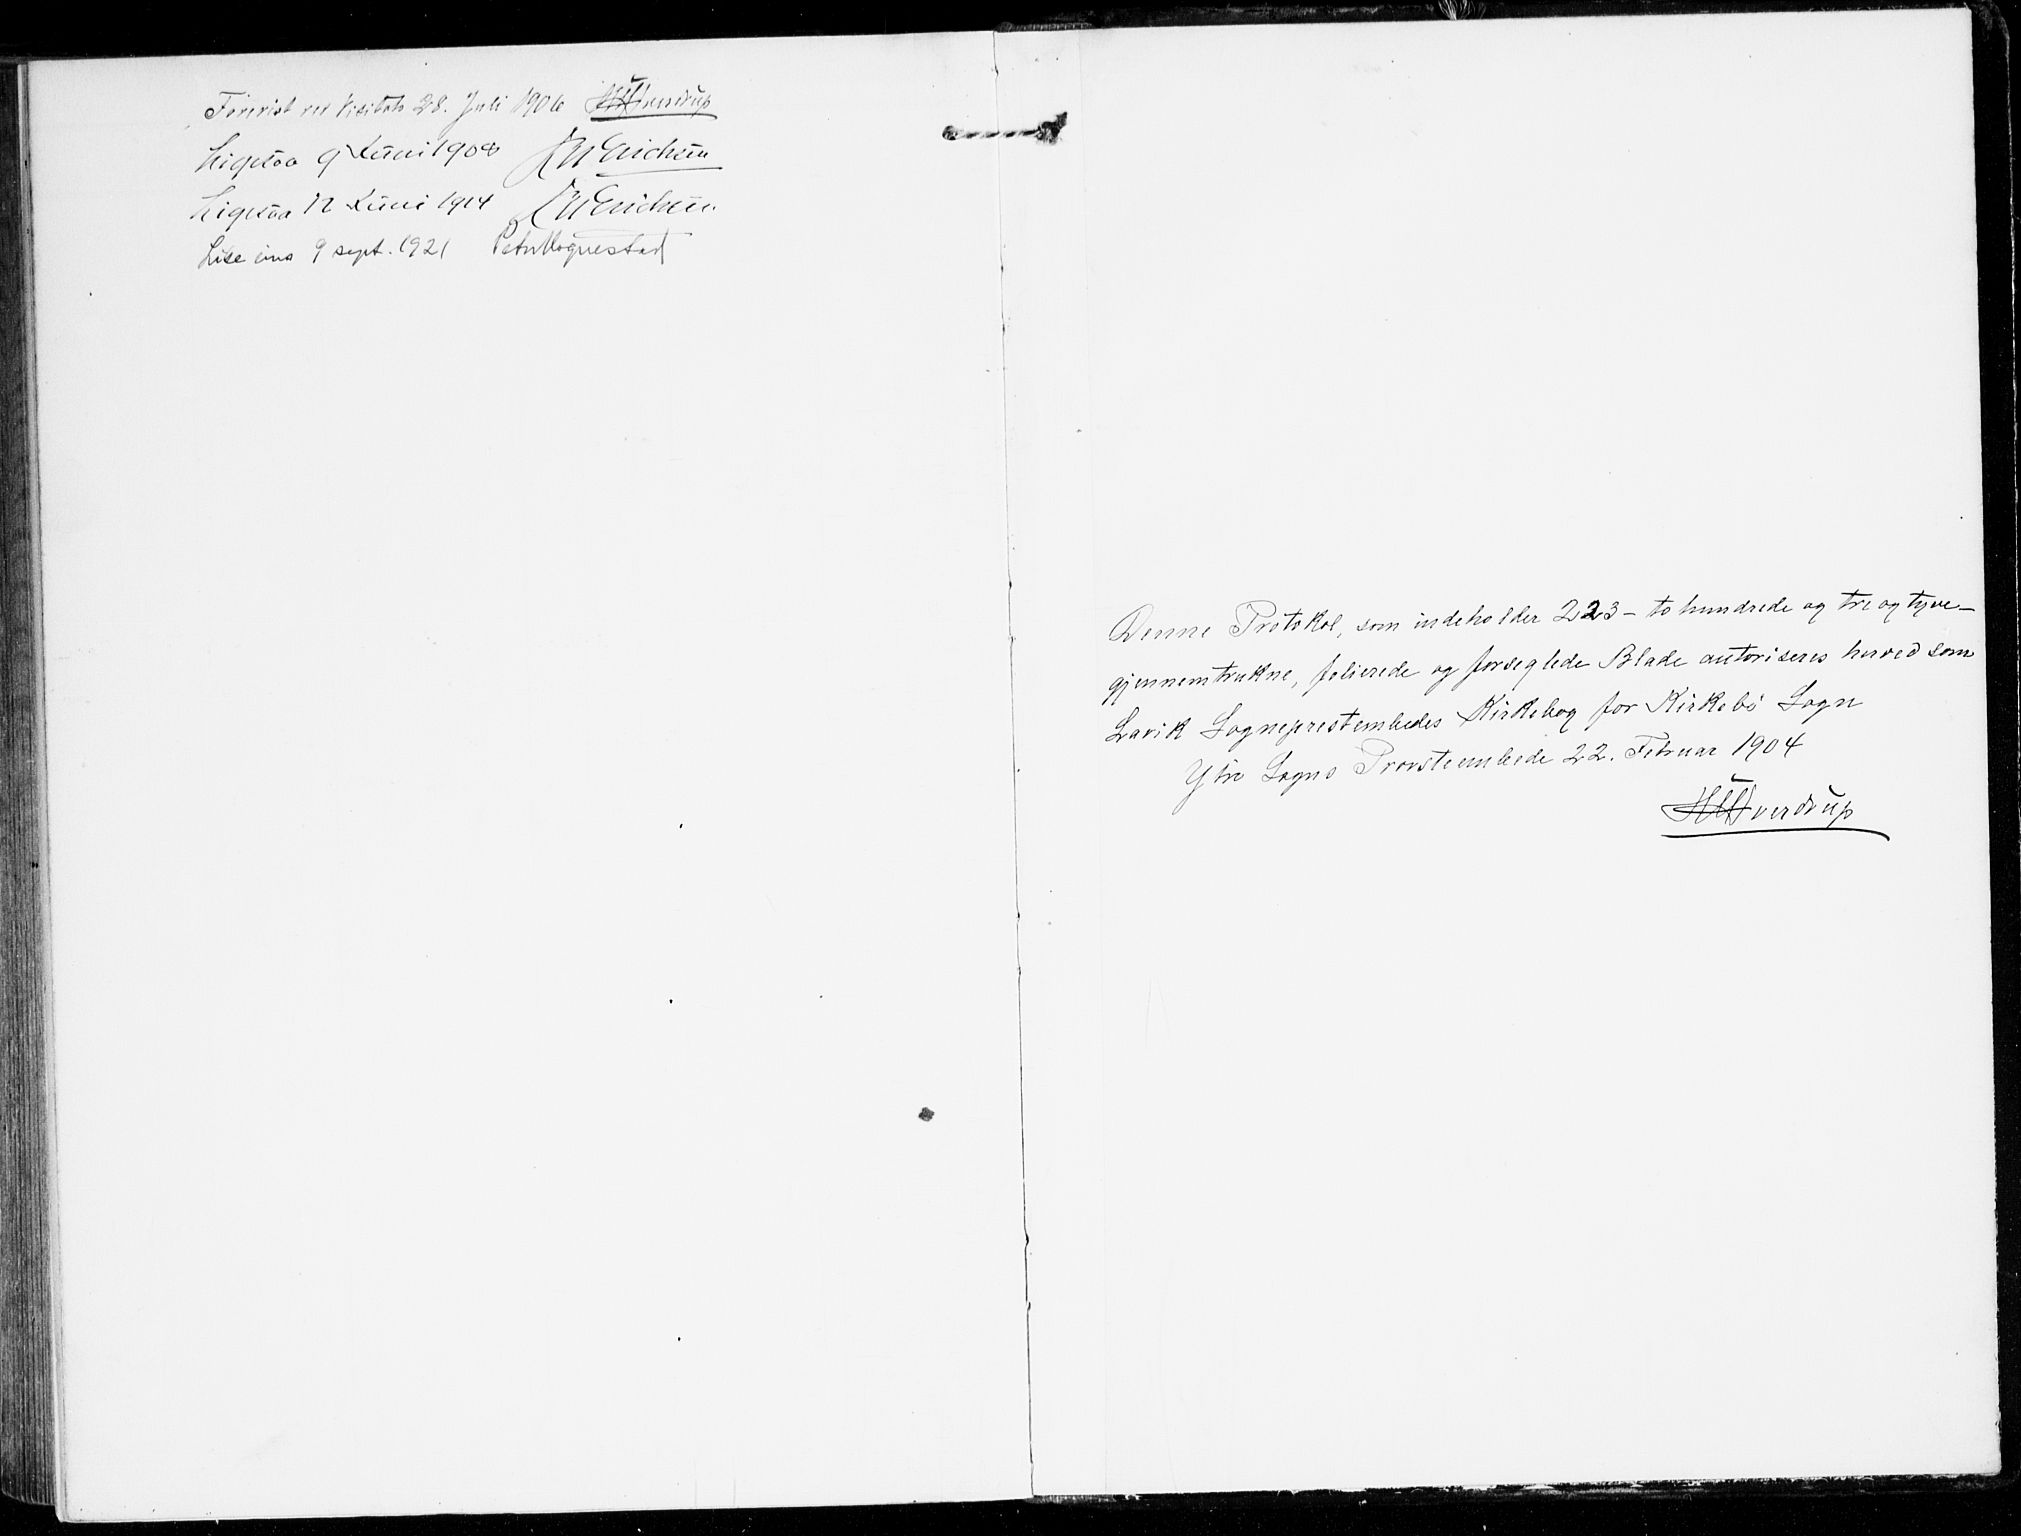 Forevist ved Visitats 28. Juli 1906 Sverdrup
Ligesaa 9 Juni 1908 Erichsen
Ligesaa 12 Juni 1914 Erichsen
9 sept. 1921 Peter Hognestad
Denne Protokol, som indeholder 223 - to hundrede og tre og tyve -
gjennemtrukne, folierede og forseglede Blade autoriseres herved som
Lavik Sogneprestembedes Kirkebog for Kirkebö Sogn
Ytre Sogns Provsteembede 22. Februar 1904
Sverdrup